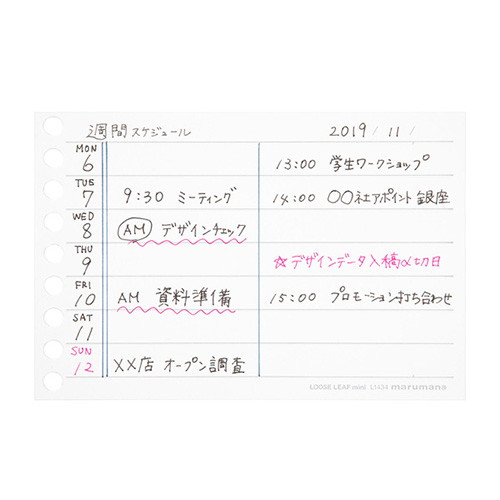 週間スケジュール 2019 / 11 /
MON
6 13:00 学生ワークショップ
TUE
7 9:30 ミーティング 14:00 〇〇社アポイント 銀座
WED
8 AM デザインチェック
THU
9 ☆デザインデータ入稿〆切日
FRI
10 AM 資料準備 15:00 プロモーション打ち合わせ
SAT
11
SUN
12 ××店 オープン調査
LOOSE LEAF mini L1434 maruman®